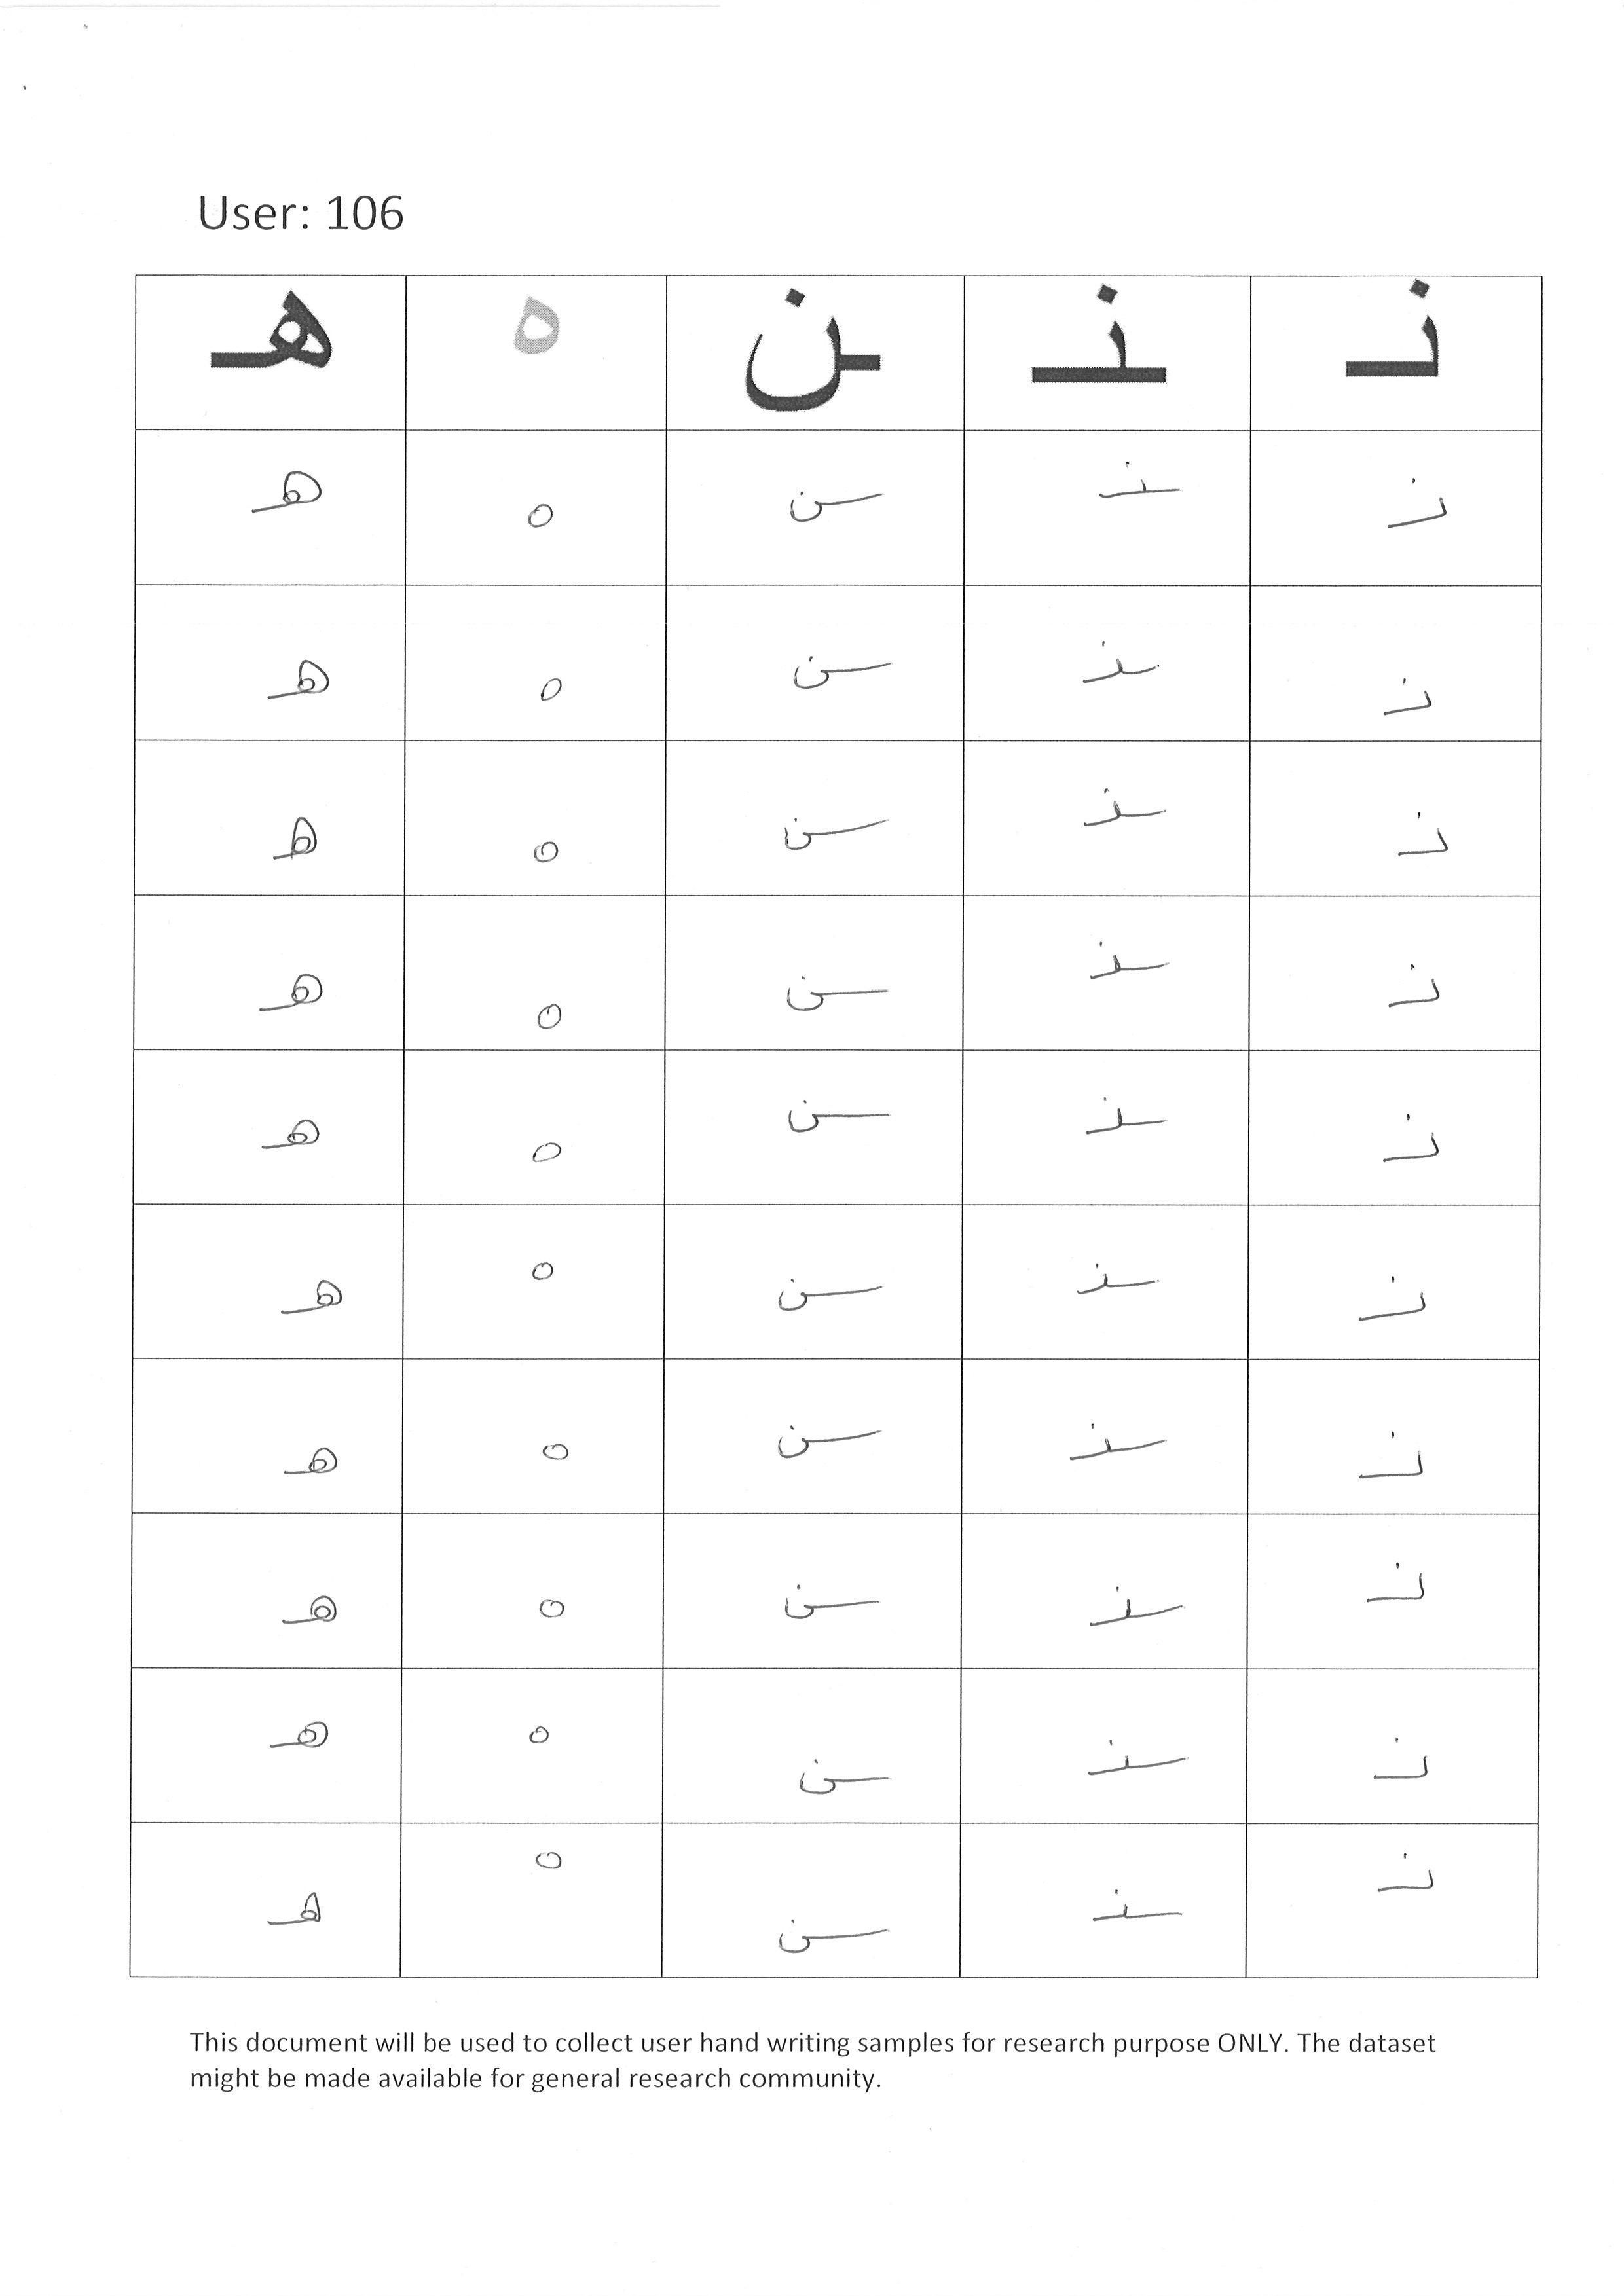 User: 106
هـ ه ـن ـنـ نـ
هـ ه ـن ـنـ نـ
هـ ه ـن ـنـ نـ
هـ ه ـن ـنـ نـ
هـ ه ـن ـنـ نـ
هـ ه ـن ـنـ نـ
هـ ه ـن ـنـ نـ
هـ ه ـن ـنـ نـ
هـ ه ـن ـنـ نـ
هـ ه ـن ـنـ نـ
هـ ه ـن ـنـ نـ
This document will be used to collect user hand writing samples for research purpose ONLY. The dataset
might be made available for general research community.